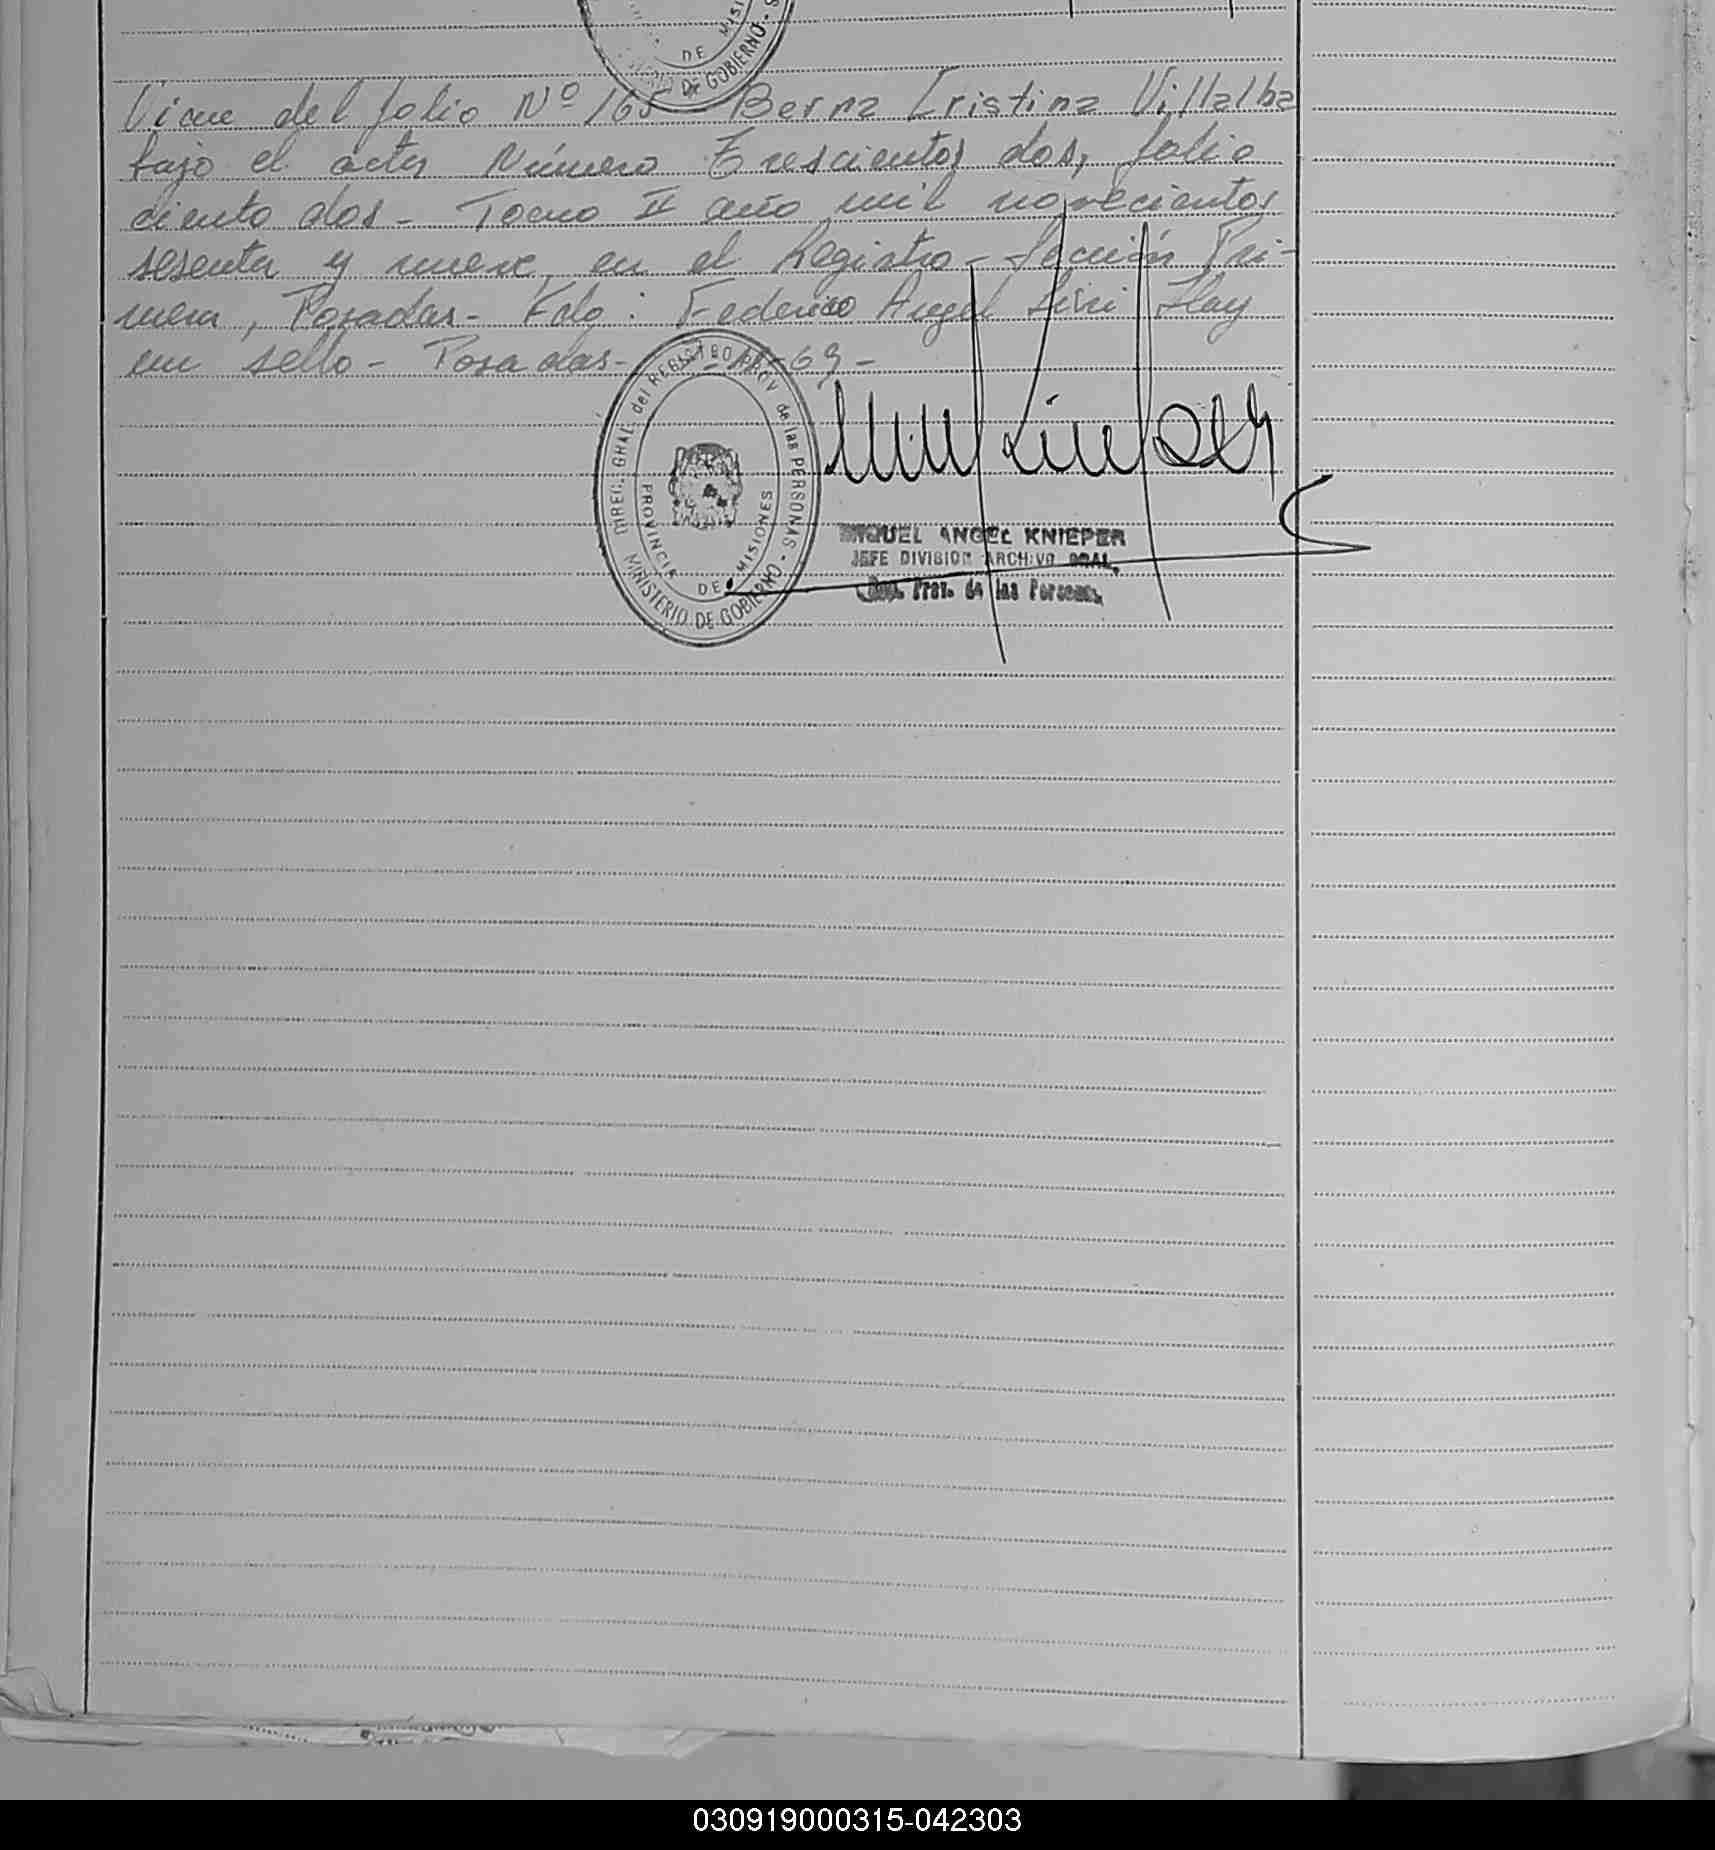 DE MISI
DE GOBIERNO - S
Viene del folio Nº 165 Berna Cristina Villalba
bajo el acta Número Trescientos dos, folio
ciento dos - Tomo II año mil novecientos
sesenta y nueve, en el Registro - Sección Pri-
mera, Posadas - Fdo: Federico Angel Hay
un sello - Posadas - 69 -
DIREC. GRAL. del REGISTRO PROV. de las PERSONAS -
MINISTERIO DE GOBIERNO
PROVINCIA DE MISIONES
MIGUEL ANGEL KNIEPER
JEFE DIVISION ARCHIVO GRAL.
Prov. de las Personas
030919000315-042303